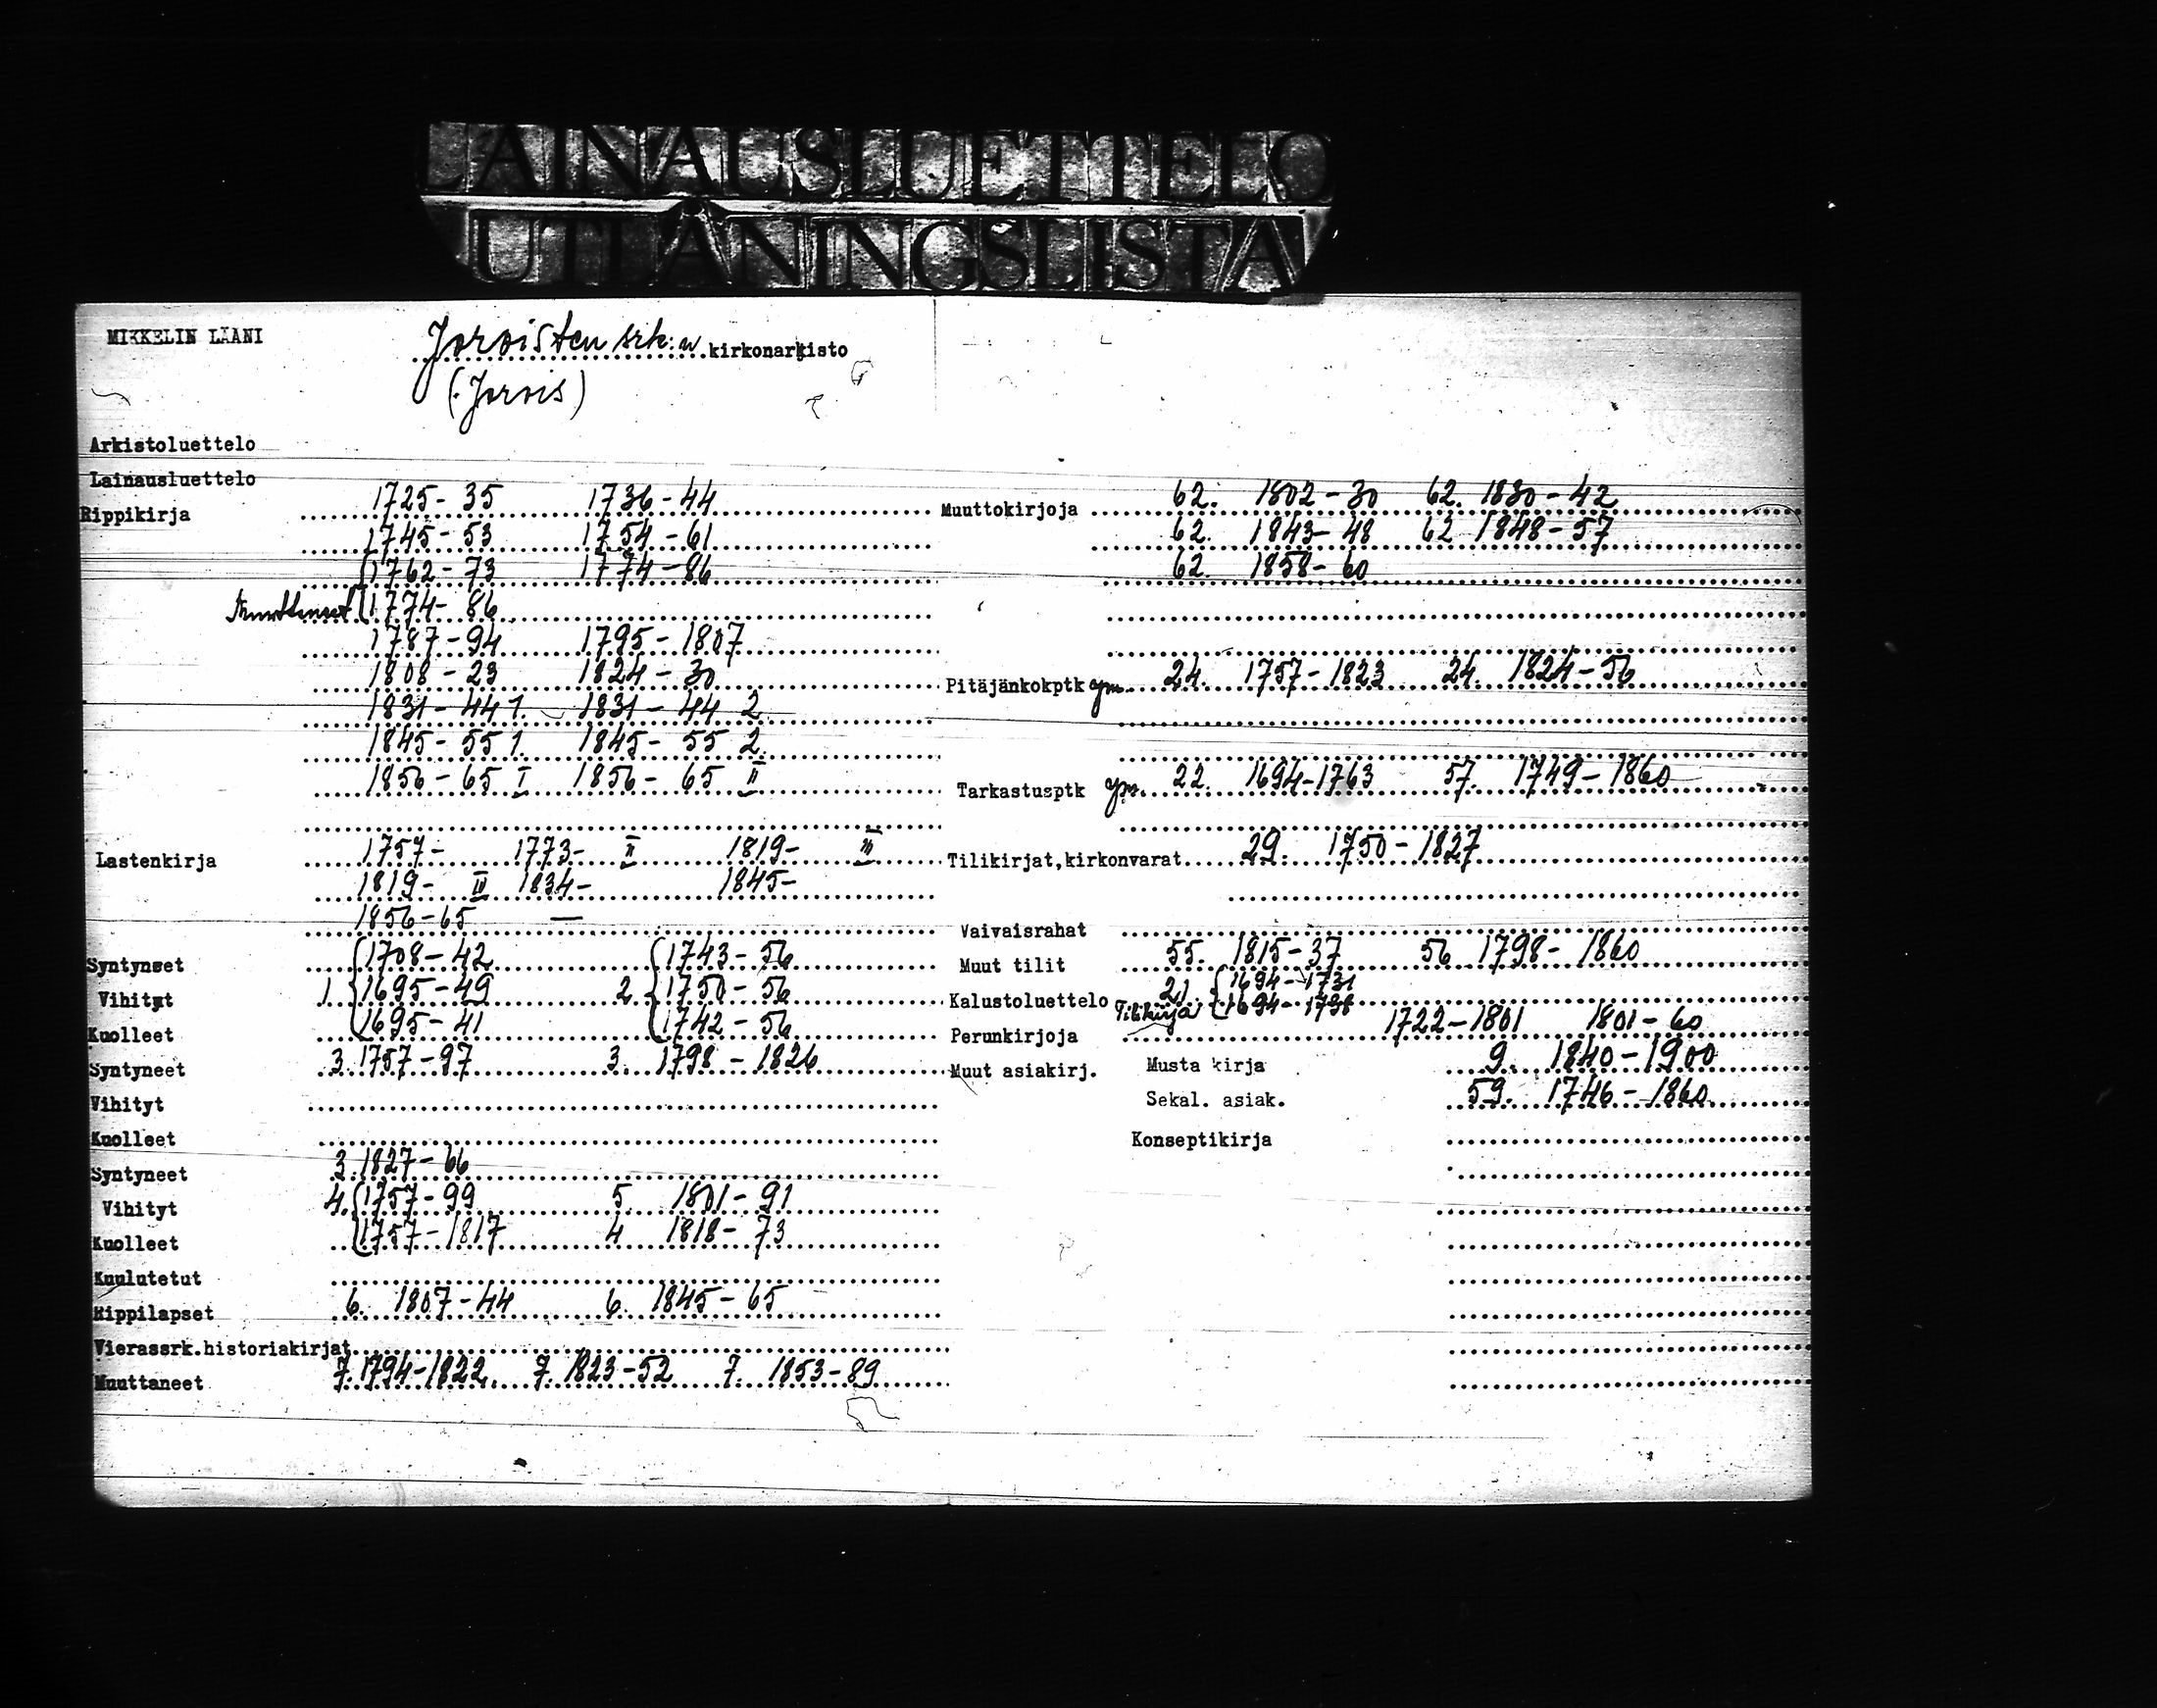 LAINAUSLUETTELO
UTLÅNINGSLISTA
MIKKELIN LÄÄNI
Joroisten srk:n kirkonarkisto
(Jorois)
Arkistoluettelo
Lainausluettelo
Rippikirja 1725-35 1736-44
1745-53 1754-61
1762-73 1774-86
1774-86
1787-94 1795-1807
1808-23 1824-30
1831-44 1. 1831-44 2
1845-55 1. 1845-55 2.
1856-65 I 1856-65 II
Lastenkirja 1757- 1773- II 1819- III
1819- IV 1834- 1845-
1856-65 —
Syntyneet 1708-42 1743-56
Vihityt 1. 1695-49 2 1750-56
Kuolleet 1695-41 1742-56
Syntyneet 3. 1757-97 3. 1798-1826
Vihityt
Kuolleet
Syntyneet 3. 1827-66
Vihityt 4. 1757-99 5. 1801-91
Kuolleet 1757-1817 4 1818-73
Kuulutetut
Rippilapset 6. 1807-44 6. 1845-65
Vierassrk.historiakirjat
Muuttaneet 7. 1794-1822. 7. 1823-52 7. 1853-89
Muuttokirjoja 62. 1802-30 62. 1830-42
62. 1843-48 62 1848-57
62. 1858-60
Pitäjänkokptk ym. 24. 1757-1823 24. 1824-56
Tarkastusptk ym. 22. 1694-1763 57. 1749-1860
Tilikirjat,kirkonvarat 29. 1750-1827
Vaivaisrahat
Muut tilit 55. 1815-37 56 1798-1860
Kalustoluettelo 21. 1694-1731
Tilikirja 1694-1738
Perunkirjoja 1722-1801 1801-60
Muut asiakirj. Musta kirja 9. 1840-1900
Sekal. asiak. 59. 1746-1860
Konseptikirja